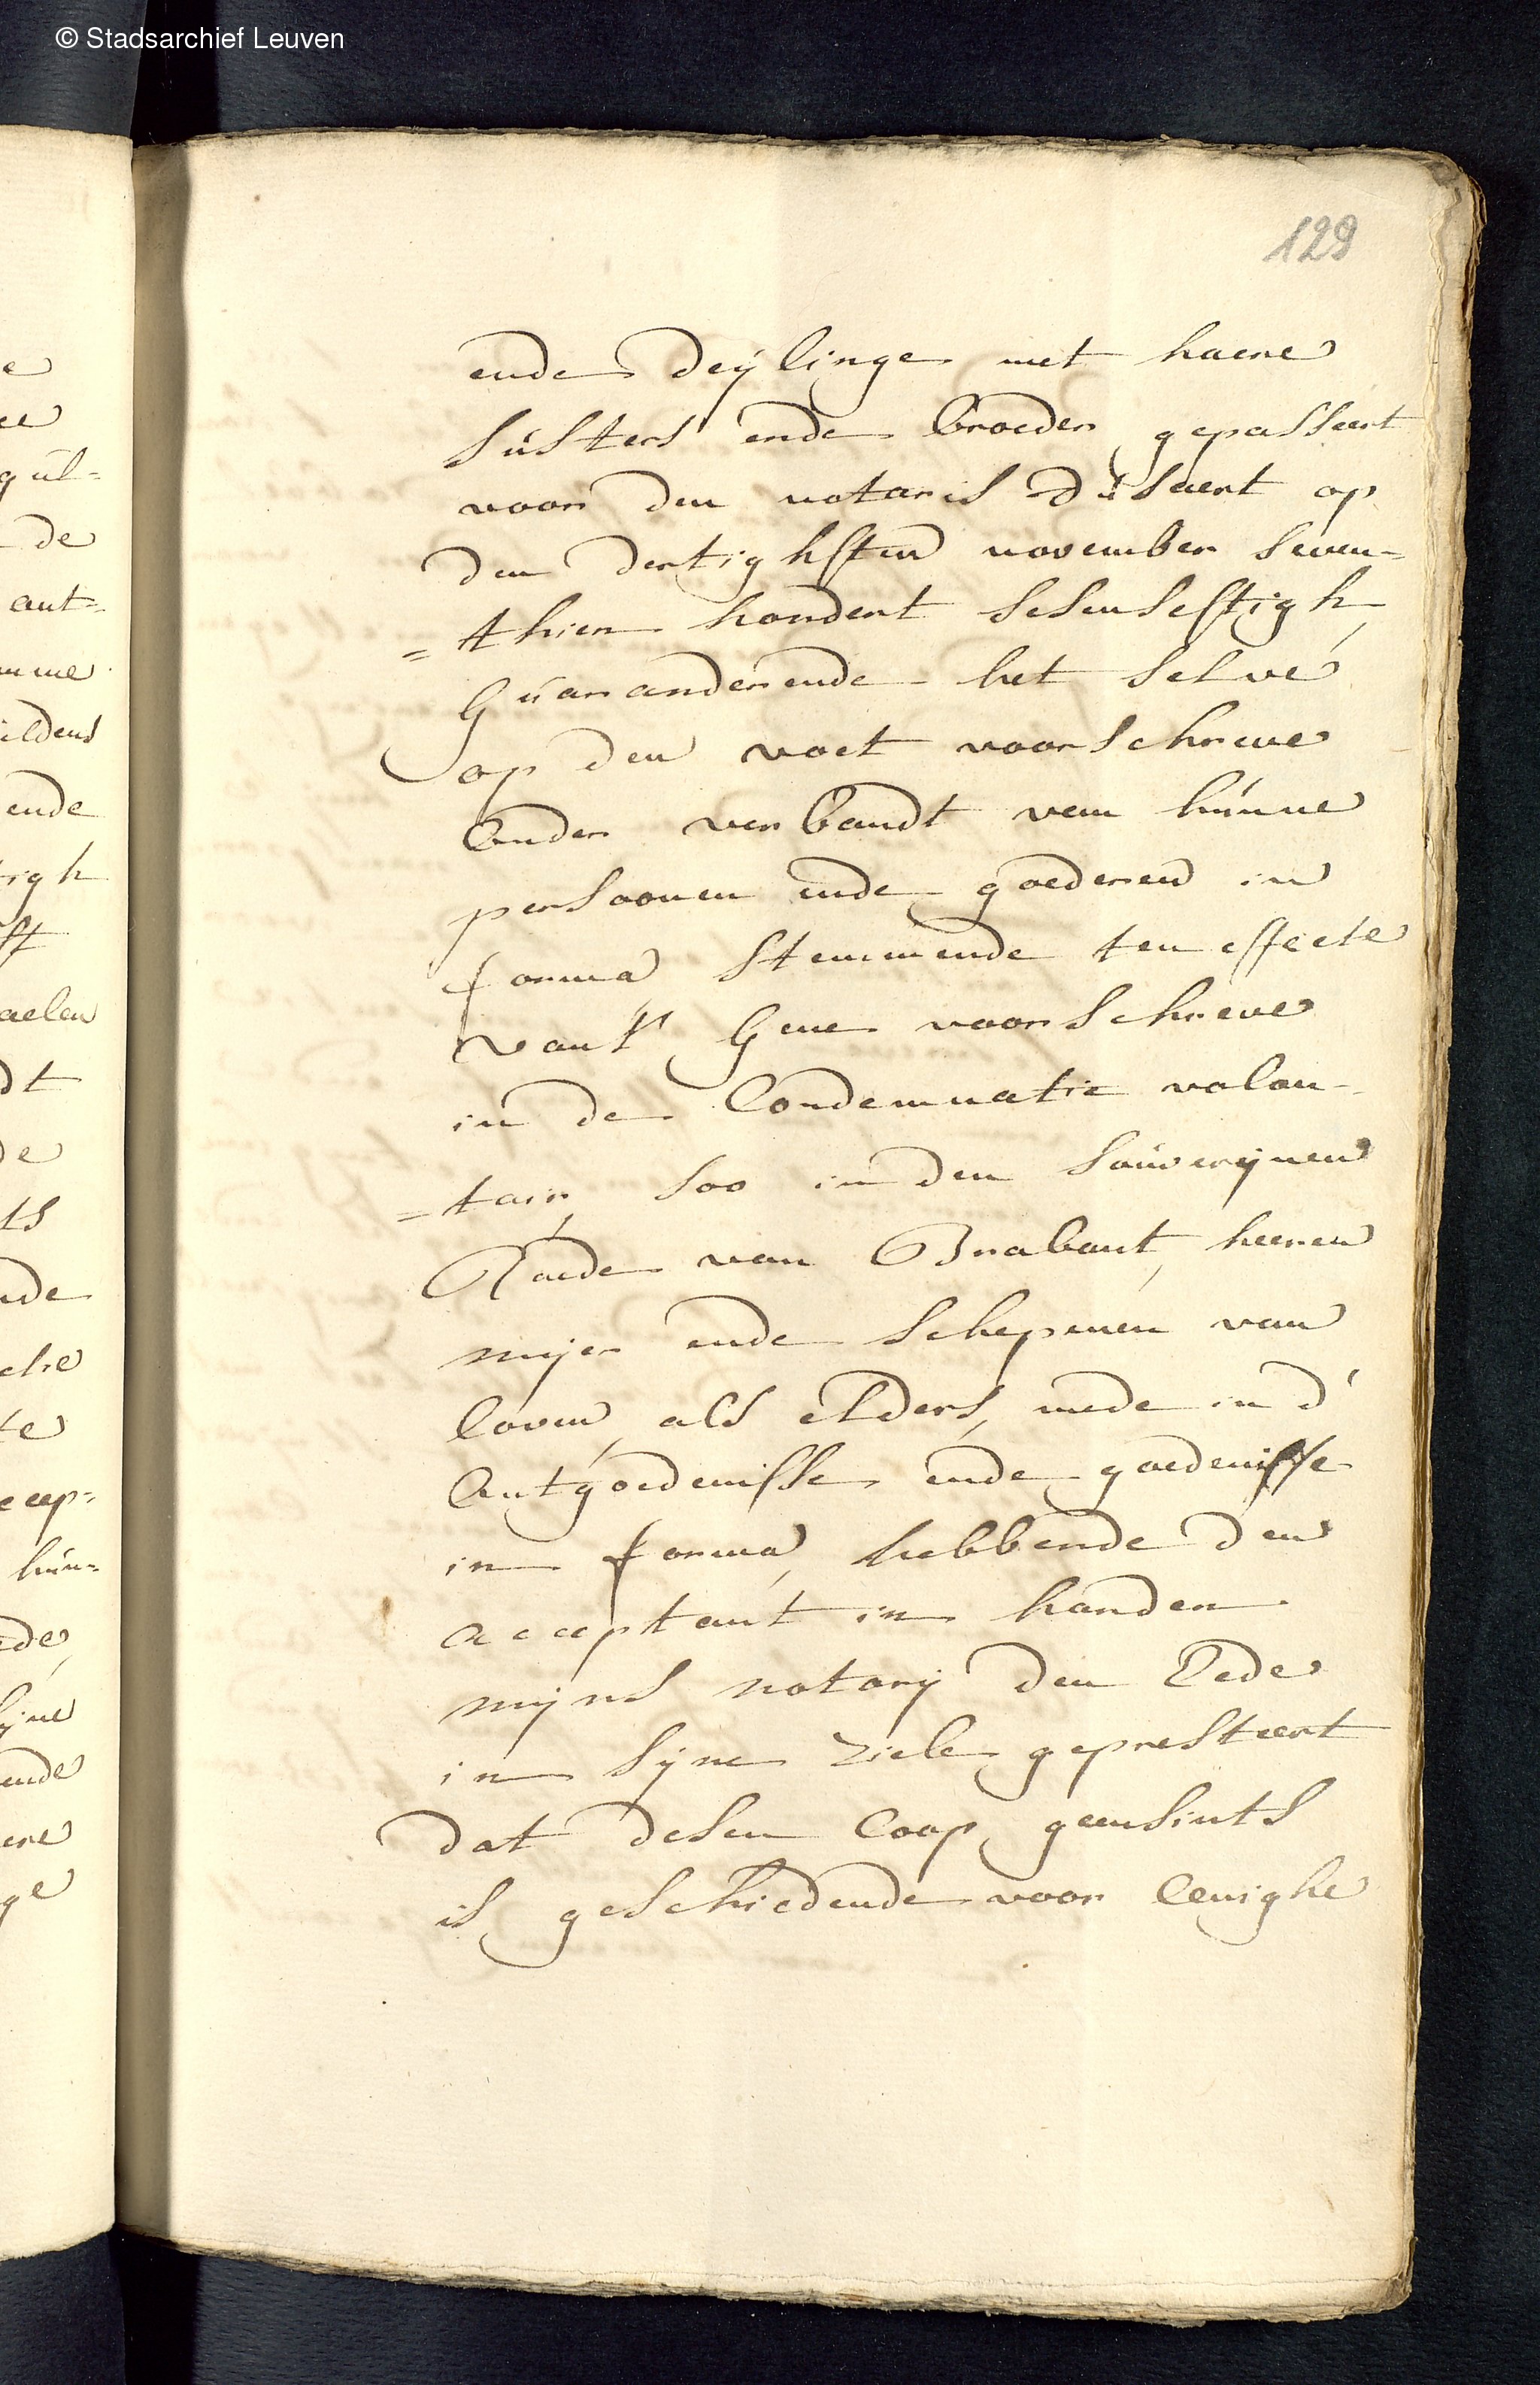 © Stadsarchief Leuven
129
ende deÿlinge met haere
süsters ende broeder gepasseert
voor den notaris düsaert op
den dertighsten november seven-
=thien hondert sesensestigh,
Guaranderende het selve
op den voet voorschreve
onder verbandt van hünne
persoonen ende goederen in
forma stemmende ten effecte
van't Gene voorschreve
in de Condemnatie volon-
=tair, soo in den souverijnen
Raede van Brabant, heeren
mijer ende schepenen van
loven als elders, mede in d'
ontgoedenisse ende goedenisse
in forma, hebbende den
acceptant in handen
mijns notarij den Eede
in sijne ziele gepresteert
dat desen Coop geensints
is geschiedende voor Eenighe